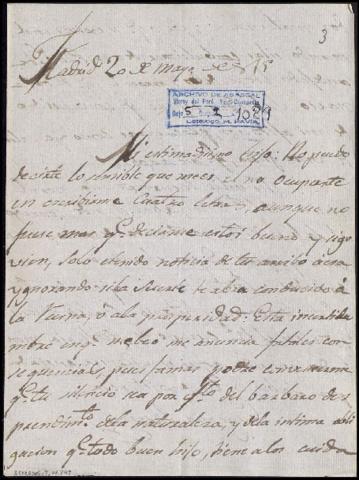 3
Madrid 20 de Mayo de 815
ARCHIVO DE ABASCAL
Virrey del Perú
Caja 5 2 1089
Catálogo M. PAVIA
Mi estimadisimo hijo: No puedo
decirte lo sensible que me es, el no ocuparte
en escribirme cuatro letras, aunque no
fuese mas q.e decirme estoi bueno y sigo
vien, solo tenido noticia de tu arrivo a
ygnorando si la Suerte te abra conducido á
la Ruina, ó ala prosperidad: Esta incertidu
mbre en q. me beo me anuncia fatales con
sequencias, pues jamas podre conversarme
q.e tu silencio sea por del barbaro des
prendim.to dela naturaleza, y dela intima obli
gacion q.e todo buen hijo, tiene alos cuida